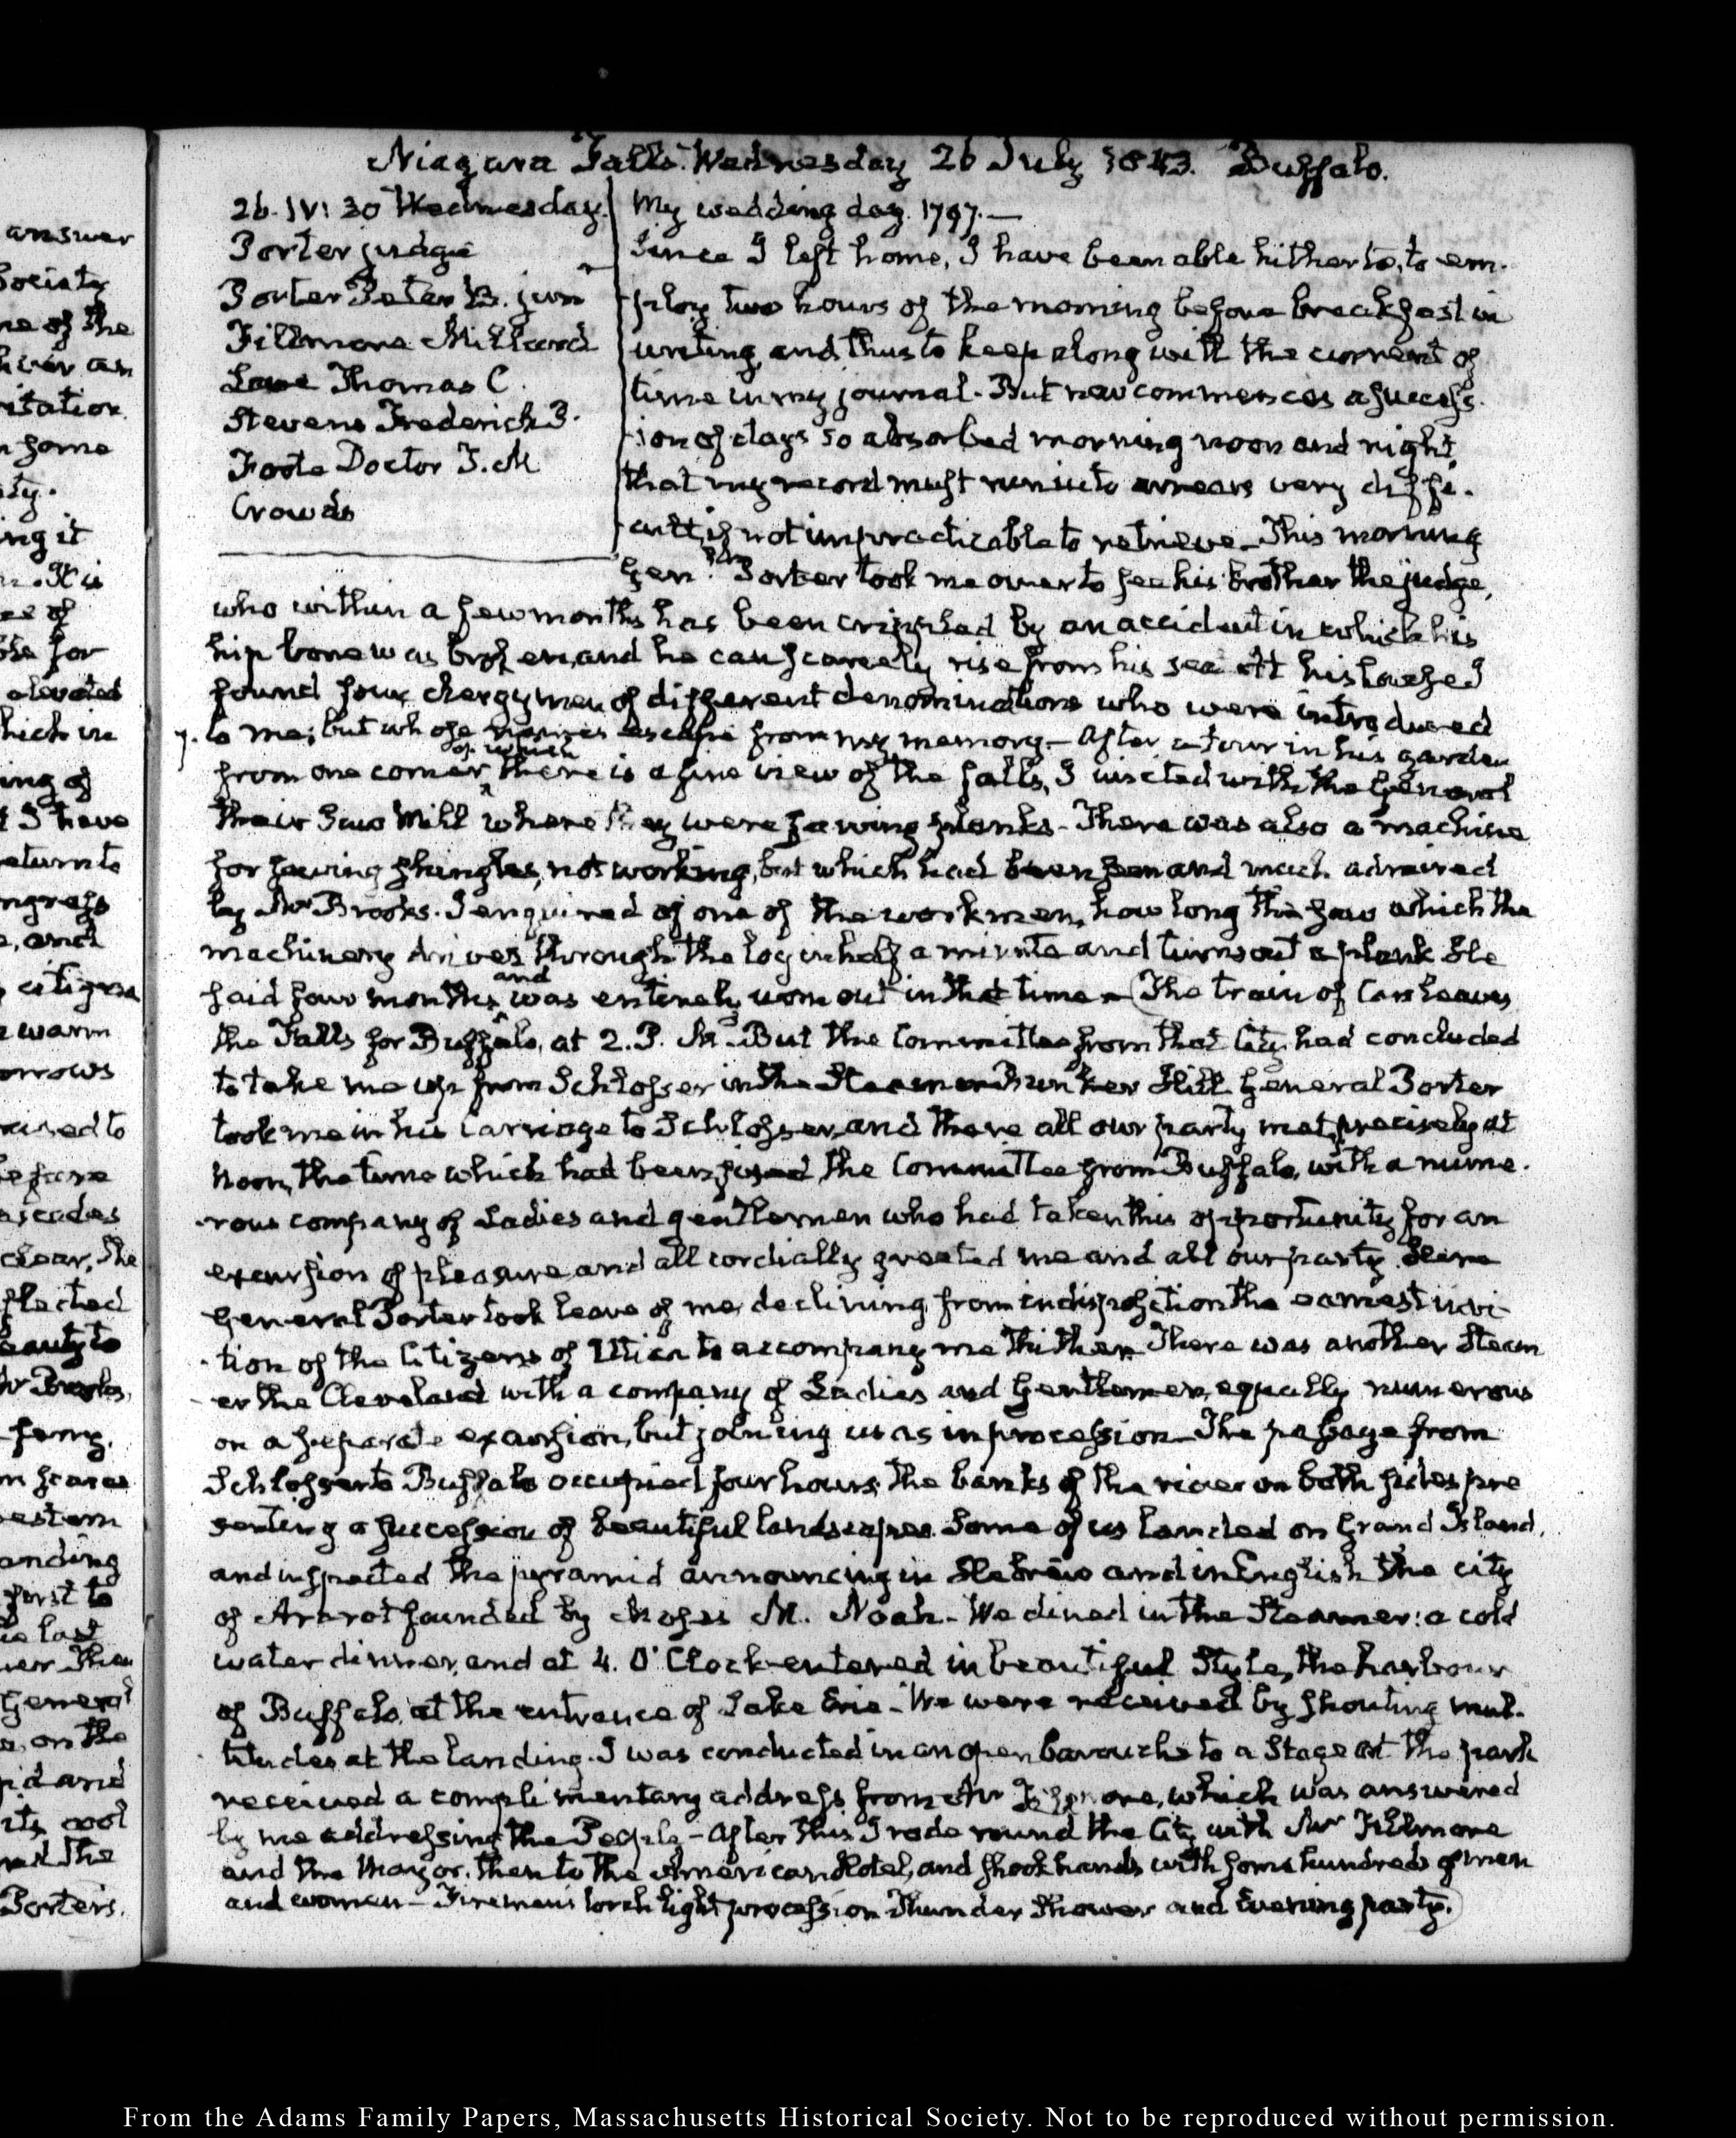 Niagara Falls. Wednesday 26 July 1843. Buffalo.
26. IV: 30 Wednesday.
Porter judge
Porter Peter B. jun
Fillmore Millard
Love Thomas C.
Stevens Frederick P.
Foote Doctor T. M
Crowds
My wedding day. 1797.—
Since I left home, I have been able hitherto, to em-
ploy two hours of the morning before breakfast in
writing, and thus to keep along with the current of
time in my journal. But now commences a success-
ion of days so absorbed morning noon and night,
that my record must run into arrears very diffi-
cult, if not impracticable to retrieve. This morning
Genl. Porter took me over to see his brother the judge,
who within a few months has been crippled by an accident in which his
hip bone was broken, and he can scarcely rise from his seat. At his house I
found four clergymen of different denominations who were introduced
to me; but whose names escape from my memory. After a tour in his garden
from one corner of which there is a fine view of the falls, I visited with the General
their Saw Mill where they were sawing planks. There was also a machine
for sawing shingles, not working, but which had been seen and much admired
by Mr Brooks. I enquired of one of the workmen, how long the saw which the
machinery drives through the log in half a minute and turns out a plank. He
said four months, and was entirely worn out in that time. (The train of Cars leaves
the Falls for Buffalo, at 2. P. M. But the Committee from that City had concluded
to take me up from Schlosser in the Steamer Bunker Hill. General Porter
took me in his Carriage to Schlosser, and there all our party met, precisely at
Noon, the time which had been fixed, the Committee from Buffalo, with a nume-
rous company of Ladies and gentlemen who had taken this opportunity for an
excursion of pleasure, and all cordially greeted me and all our party. Here
General Porter took leave of me, declining from indisposition the earnest invi-
tion of the Citizens of Utica to accompany me thither. There was another Steam
er the Cleveland with a company of Ladies and Gentlemen, equally numerous
on a separate excursion, but joining us as in procession. The passage from
Schlosser to Buffalo occupied four hours, the banks of the river on both sides pre
senting a succession of beautiful landscapes. Some of us landed on Grand Island,
and inspected the pyramid announcing in Hebrew and in English the city
of Ararat founded by Moses M. Noah. We dined in the Steamer: a cold
water dinner, and at 4. O'Clock entered in beautiful Style, the harbour
of Buffalo, at the entrance of Lake Erie. We were received by shouting mul-
titudes at the landing. I was conducted in an open barouche to a Stage at the park
received a complimentary address from Mr Fillmore, which was answered
by me addressing the People. After this I rode round the City with Mr Fillmore
and the Mayor. then to the American Hotel, and shook hands with some hundreds of men
and women. Firemens torch light procession Thunder Shower and Evening party.)
answer
Society
ne of the
ing it
It is
ee of
for
elevated
hich in
ing of
I have
return to
ngress
and
citizen
warm
orrows
before
ascades
clear, the
flected
eauty to
Mr Brooks,
estern
anding
first to
last
General
on the
id and
its cool
the
Porters.
From the Adams Family Papers, Massachusetts Historical Society. Not to be reproduced without permission.